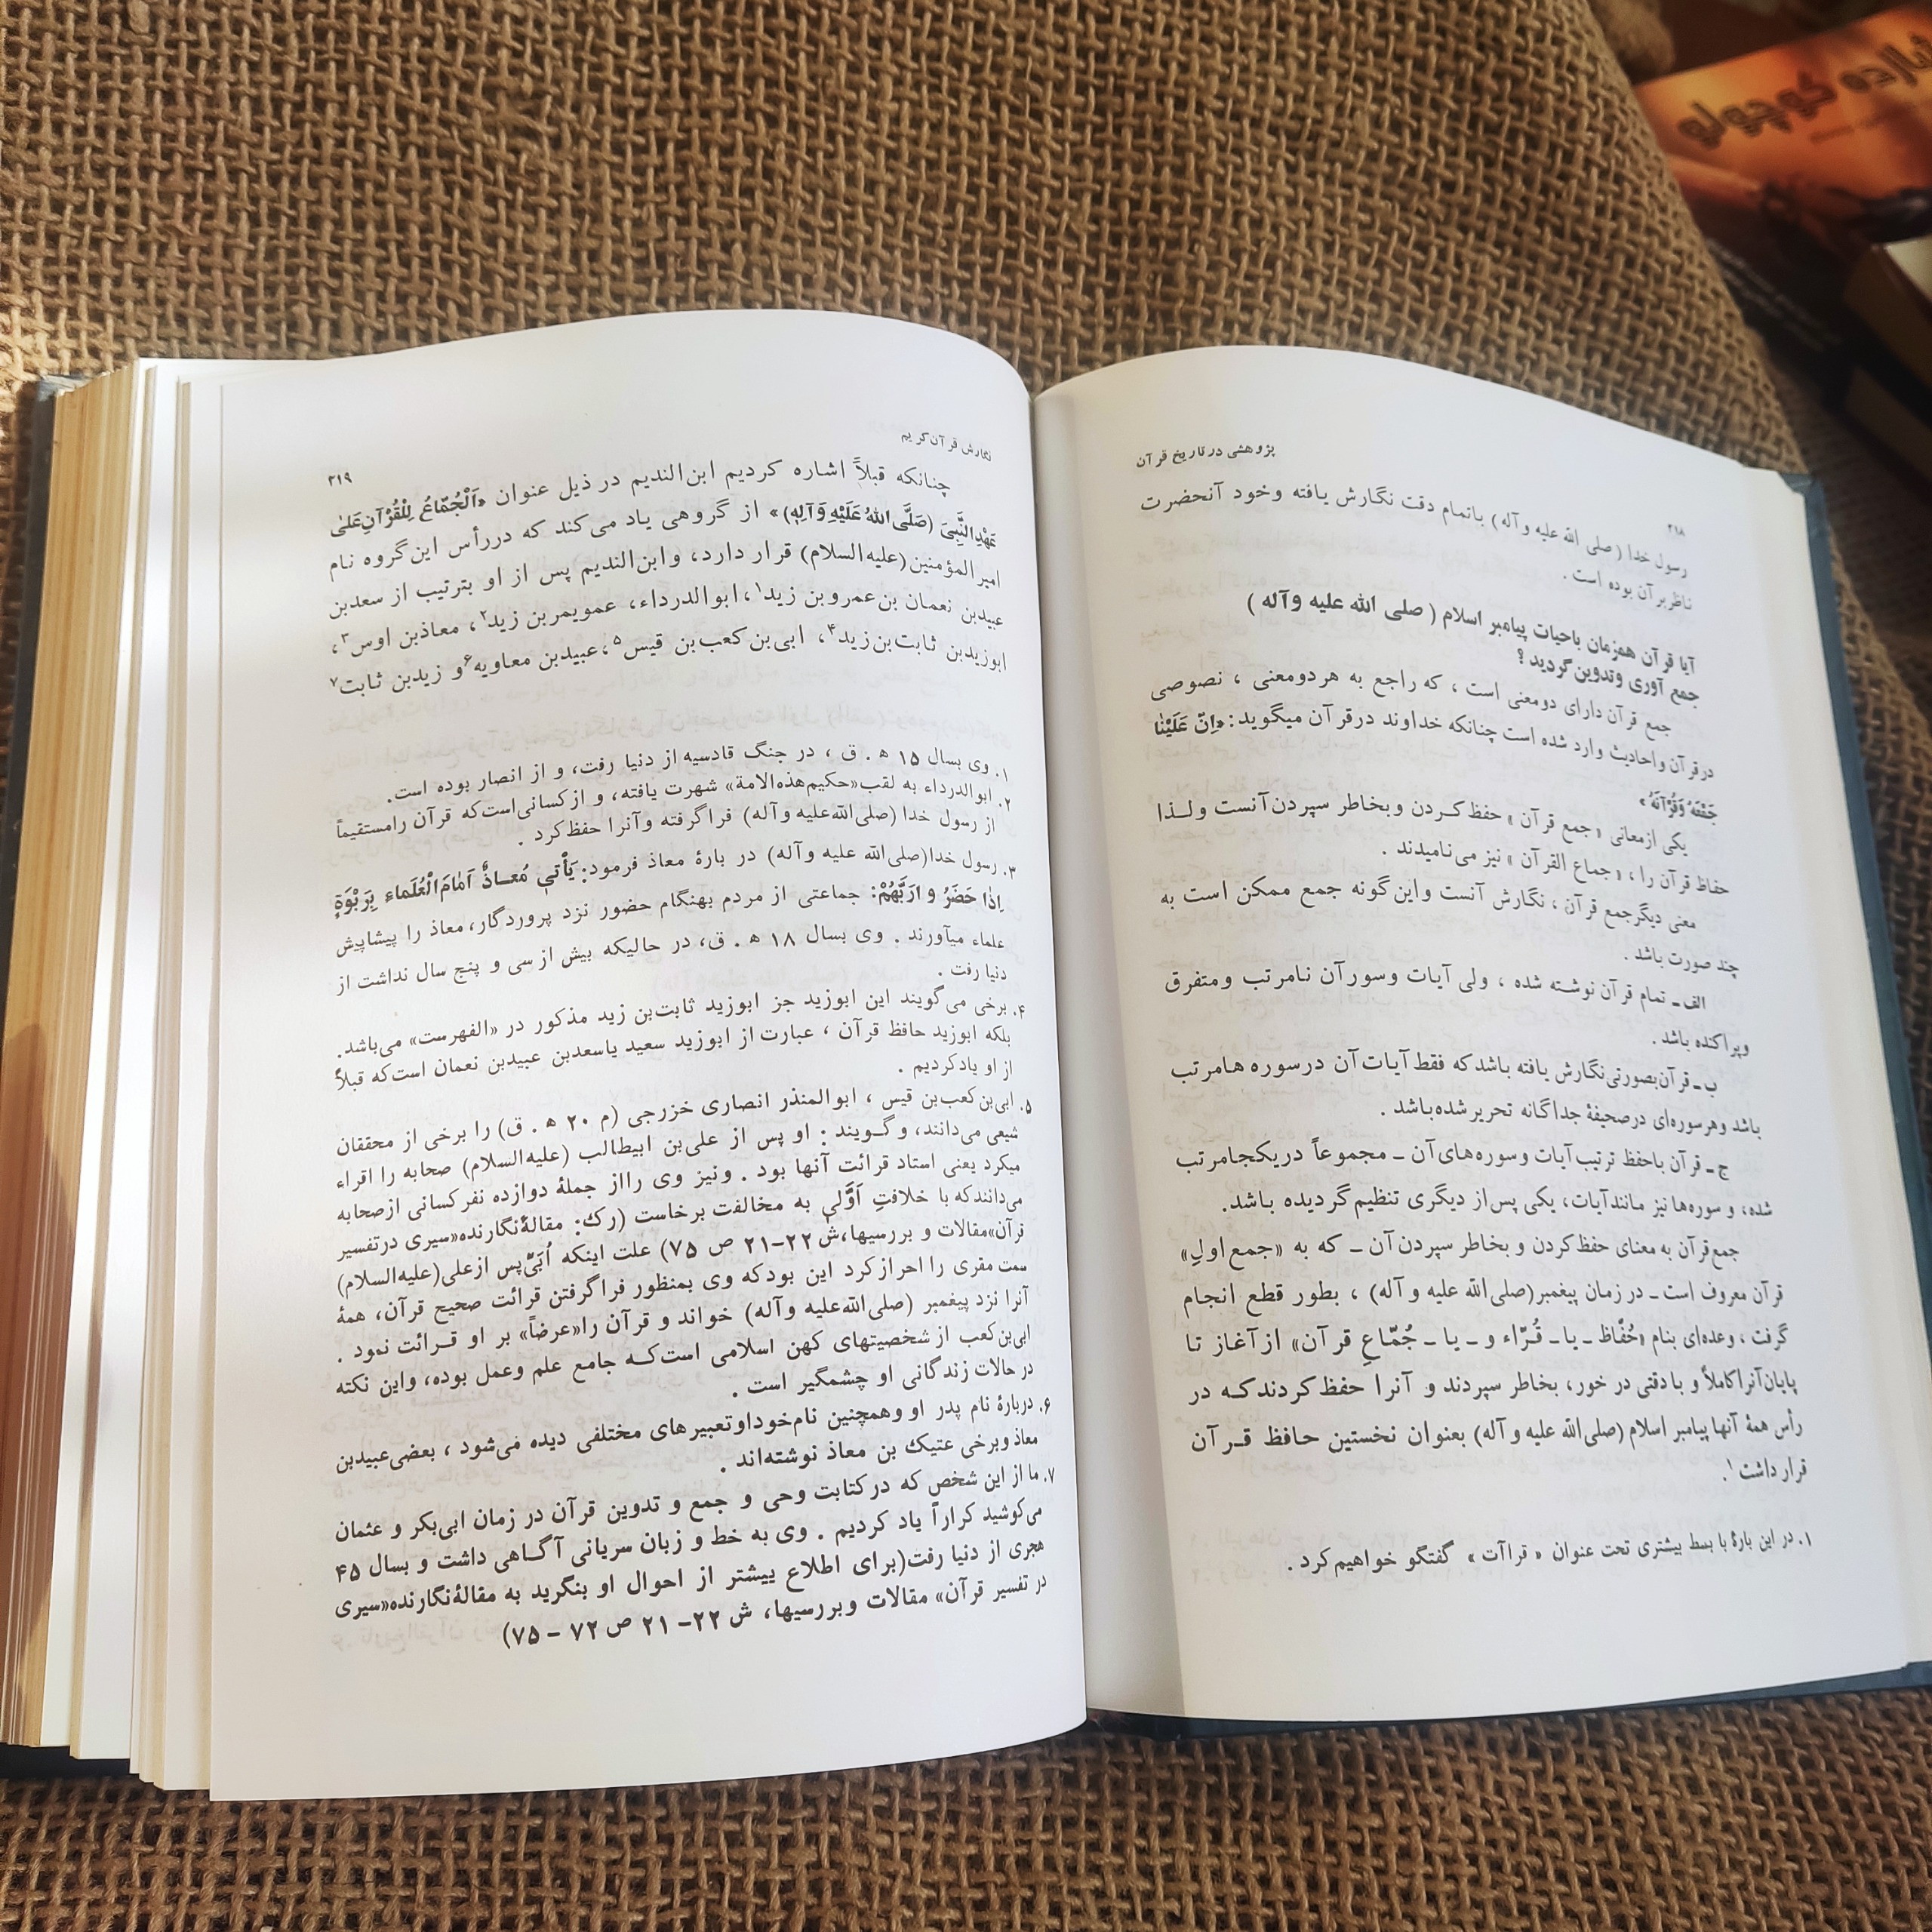 پژوهشی در تاریخ قرآن
۲۱۸
رسول خدا (صلی الله علیه و آله) باتمام دقت نگارش یافته وخود آنحضرت
ناظر بر آن بوده است .
آیا قرآن همزمان باحیات پیامبر اسلام ( صلی الله علیه وآله )
جمع آوری وتدوین گردید ؟
جمع قرآن دارای دومعنی است ، که راجع به هر دومعنی ، نصوصی
درقرآن واحادیث وارد شده است چنانکه خداوند درقرآن میگوید: «اِنَّ عَلَیْنٰا
جَمْعَهُ وَقُرْآنَهُ»
یکی ازمعانی «جمع قرآن» حفظ کردن وبخاطر سپردن آنست ولـذا
حفاظ قرآن را ، «جماع القرآن» نیز می‌نامیدند .
معنی دیگرجمع قرآن ، نگارش آنست واین گونه جمع ممکن است به
چند صورت باشد .
الف ـ تمام قرآن نوشته شده ، ولی آیات وسورآن نامرتب ومتفرق
وپراکنده باشد .
ب ـ قرآن بصورتی نگارش یافته باشدکه فقط آیات آن درسوره هامرتب
باشد وهرسوره‌ای درصحیفهٔ جداگانه تحریر شده باشد .
ج ـ قرآن باحفظ ترتیب آیات و سوره‌های آن ـ مجموعاً دریکجامرتب
شده، و سوره‌ها نیز مانندآیات، یکی پس از دیگری تنظیم گردیده باشد.
جمع قرآن به معنای حفظ کردن و بخاطر سپردن آن ـ که به «جمع اولِ»
قرآن معروف است ـ در زمان پیغمبر(صلی الله علیه و آله) ، بطور قطع انجام
گرفت ، وعده‌ای بنام «حُفّاظ ـ یا ـ قُرّاء و ـ یا ـ جُمّاعِ قرآن» ازآغاز تا
پایان آنراکاملاً و بادقتی در خور، بخاطر سپردند و آنرا حفظ کردندکـه در
رأس همهٔ آنها پیامبر اسلام (صلی الله علیه و آله) بعنوان نخستین حافظ قـرآن
قرار داشت ۱.
۱. در این بارهٔ با بسط بیشتری تحت عنوان « قراآت » گفتگو خواهیم کرد .
نگارش قرآن کریم
۲۱۹
چنانکه قبلاً اشاره کردیم ابن‌الندیم در ذیل عنوان «اَلْجُمّاعُ لِلْقُرْآنِ عَلیٰ
عَهْدِ النَّبِیِّ (صَلَّی اللهُ عَلَیْهِ وَآلِهِ)» از گروهی یاد می‌کند که دررأس این گروه نام
امیرالمؤمنین(علیه‌السلام) قرار دارد، وابن‌الندیم پس از او بترتیب از سعدبن
عبیدبن نعمان بن عمروبن زید۱ ،ابوالدرداء، عمویمربن زید۲ ، معاذبن اوس۳ ،
ابوزیدبن ثابت‌بن زید۴ ، ابی‌بن کعب‌بن قیس۵ ،عبیدبن معاویه۶ و زیدبن ثابت۷
۱. وی بسال ۱۵ ه . ق ، در جنگ قادسیه از دنیا رفت، و از انصار بوده است.
۲. ابوالدرداء به لقب«حکیم هذه‌الامة» شهرت یافته، و ازکسانی است‌که قرآن رامستقیماً
از رسول خدا (صلی‌الله‌علیه و آله) فراگرفته وآنرا حفظ کرد .
۳. رسول خدا(صلی‌الله علیه و آله) در بارهٔ معاذ فرمود: یَأْتی مُعـاذٌ اَمٰامَ الْعُلَماءِ بِرَبْوَةٍ
اِذٰا حَضَرُ و ارَبَّهُمْ: جماعتی از مردم بهنگام حضور نزد پروردگار، معاذ را پیشاپیش
علماء میآورند . وی بسال ۱۸ ه . ق، در حالیکه بیش از سی و پنج سال نداشت از
دنیا رفت .
۴. برخی می‌گویند این ابوزید جز ابوزید ثابت‌بن زید مذکور در «الفهرست» می‌باشد.
بلکه ابوزید حافظ قرآن ، عبارت از ابوزید سعید یاسعدبن عبیدبن نعمان است‌که قبلاً
از او یادکردیم .
۵. ابی‌بن کعب‌بن قیس ، ابوالمنذر انصاری خزرجی (م ۲۰ ه . ق) را برخی از محققان
شیعی می‌دانند، وگـویند : او پس از علی‌بن ابیطالب (علیه‌السلام) صحابه را اقراء
میکرد یعنی استاد قرائت آنها بود . ونیز وی رااز جملهٔ دوازده نفرکسانی ازصحابه
می‌دانندکه با خلافتِ اَوَّلی به مخالفت برخاست (رک: مقالهٔ نگارنده«سیری درتفسیر
قرآن»مقالات و بررسیها،ش ۲۲–۲۱ ص ۷۵) علت اینکه اُبَیّ پس ازعلی(علیه‌السلام)
سمت مقری را احرازکرد این بودکه وی بمنظور فراگرفتن قرائت صحیح قرآن، همهٔ
آنرا نزد پیغمبر (صلی‌الله‌علیه وآله) خواند و قرآن را«عرضاً» بر او قـرائت نمود .
ابی‌بن کعب از شخصیتهای کهن اسلامی است‌کـه جامع علم وعمل بوده، واین نکته
در حالات زندگانی او چشمگیر است .
۶. دربارهٔ نام پدر او وهمچنین نام خوداوتعبیرهای مختلفی دیده می‌شود ، بعضی عبیدبن
معاذ وبرخی عتیك بن معاذ نوشته‌اند .
۷. ما از این شخص که درکتابت وحی و جمع و تدوین قرآن در زمان ابی‌بکر و عثمان
می‌کوشید کراراً یاد کردیم . وی به خط و زبان سریانی آگـاهی داشت و بسال ۴۵
هجری از دنیا رفت(برای اطلاع بیشتر از احوال او بنگرید به مقالهٔ نگارنده«سیری
در تفسیر قرآن» مقالات وبررسیها، ش ۲۲– ۲۱ ص ۷۲ – ۷۵)
شازده کوچولو